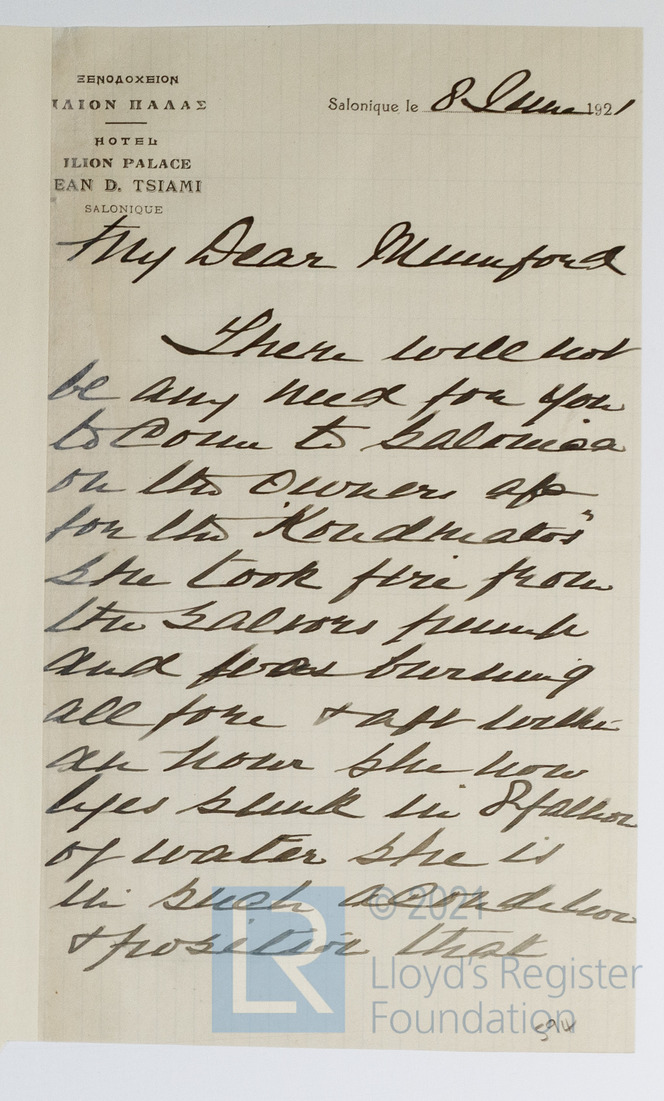 ΞΕΝΟΔΟΧΕΙΟΝ
ΙΛΙΟΝ ΠΑΛΑΣ
HOTEL
ILION PALACE
EAN D. TSIAMI
SALONIQUE
Salonique le 8 June 1921
My Dear Mumford
There will not
be any need for you
to Come to Salonica
on the Owners
for the "Kondriatos"
She took fire from
the Salvors pump
and was burning
all fore & aft within
an hour she now
lyes sunk in 8 fathom
of water she is
in such a condition
& position that
594
© 2021
LR
Lloyd's Register
Foundation